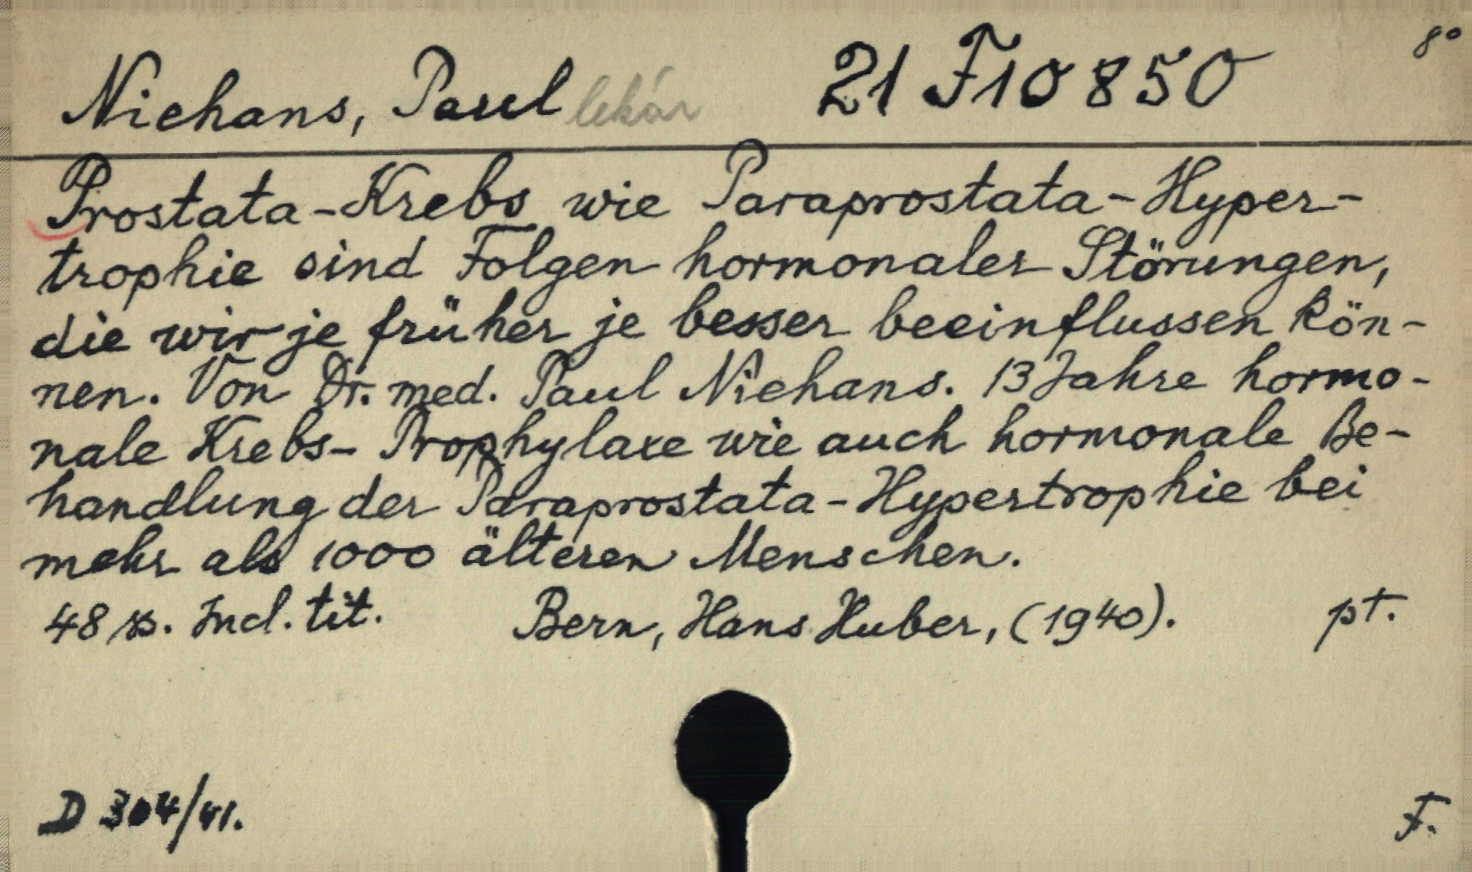 Niehans, Paul lekár 21 F 10850 8°
Prostata-Krebs wie Paraprostata-Hyper-
trophie sind Folgen hormonaler Störungen,
die wir je früher je besser beeinflussen kön-
nen. Von Dr. med. Paul Niehans. 13 Jahre hormo-
nale Krebs-Prophylaxe wie auch hormonale Be-
handlung der Paraprostata-Hypertrophie bei
mehr als 1000 älteren Menschen.
48 s. Incl. tit. Bern, Hans Huber, (1940). pt.
D 304/41. F.